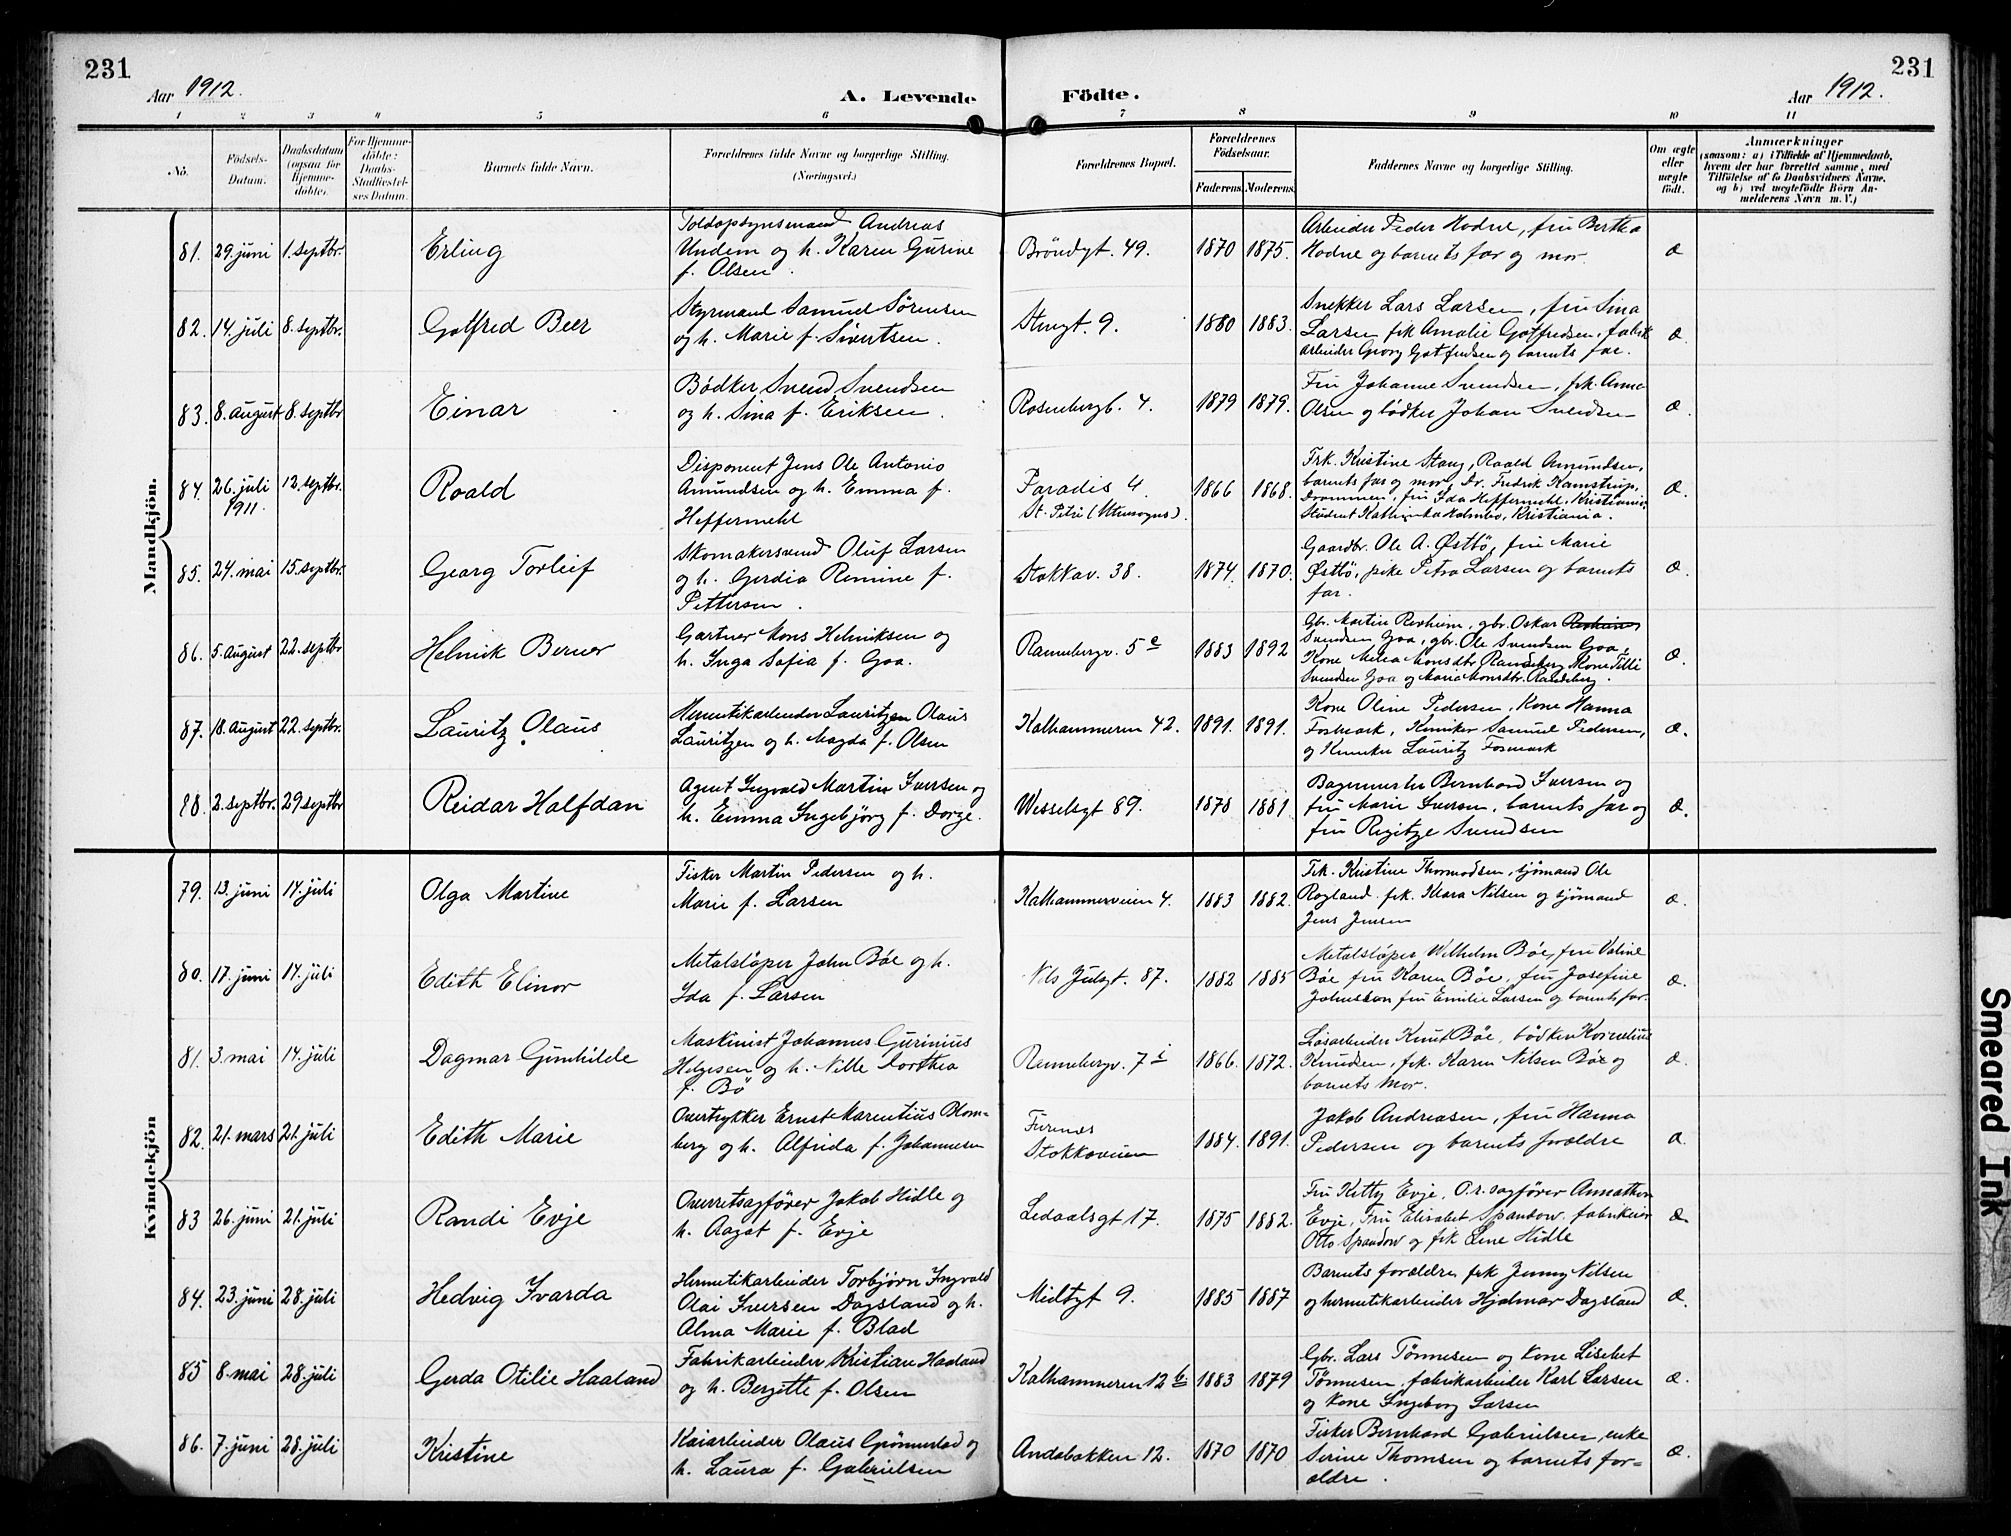 231
Aar 1912.
A. Levende Födte.
Aar 1912.
231
1 2 3 4 5 6 7 8 9 10 11
No.
Födsels-Datum.
Daabsdatum (ogsaa för Hjemmedöbte).
For Hjemmedöbte: Daabs-Stadfæstelses-Datum.
Barnets fulde Navn.
Forældrenes fulde Navne og borgerlige Stilling.
(Næringsvei.)
Forældrenes Bopæl.
Forældrenes Födselsaar.
Faderens. Moderens.
Faddernes Navne og borgerlige Stilling.
Om ægte eller uægte födt.
Anmærkninger
(saasom: a) i Tilfælde af Hjemmedaab, hvem der har forrettet samme, med Tilföielse af to Daabsvidners Navne, og b) ved uægtefödte Börn Anmelderens Navn m. V.)
Mandkjön.
81. 29. juni 1. septbr. Erling
Toldopsynsmand Andreas
Undem og h. Karen Gurine
f. Olsen.
Bröndgt. 49. 1870 1875.
Arbeider Peder Hodne, fru Bertha
Hodne og barnets far og mor.
æ
82. 14. juli 8. septbr. Gotfred Beer
Styrmand Samuel Sørensen
og h. Marie f. Sivertsen.
Stengt. 9. 1880 1883.
Snekker Lars Larsen, fru Sina
Larsen frk Amalie Gotfredsen, fabrik
arbeider Georg Gotfredsen og barnets far.
æ.
83. 8. august 8. septbr Einar
Bødker Svend Svendsen
og h. Sina f. Eriksen.
Rosenbergb. 4. 1879 1879.
Fru Johanne Svendsen, frk. Anna
Olsen og bødker Johan Svendsen
æ.
84. 26. juli 1911. 12. septbr. Roald
Disponent Jens Ole Antonio
Amundsen og h. Emma f.
Heffermehl
Paradis 4
St. Petri (Utensogns).
1866 1868.
Frk. Kristine Stang, Roald Amundsen,
barnets far og mor, Dr. Fredrik Kamstrup,
Drammen, fru Ida Heffermehl, Kristiania,
Student Kathinka Holmbo, Kristiania.
æ.
85. 24. mai 15. septbr. Georg Torleif
Skomakersvend Oluf Larsen
og h. Gerdia Remine f.
Pettersen.
Stokkav. 38. 1874. 1870.
Gaardbr. Ole A. Østbö, fru Marie
Østbö, pike Petra Larsen og barnets
far.
æ.
86. 5. august 22. septbr Helmik Berner
Gartner Mons Helmiksen og
h. Inga Sofia f. Goa.
Rannebergv. 5 e 1883 1892
Gbr. Martin Revheim, gbr. Oskar
Svendsen Goa, gbr. Ole Svendsen Goa,
Kone Melia Monsdtr Randeberg, Kone Tilli
Svendsen Goa og Maria Monsdtr. Randeberg.
æ.
87. 18. august 22. septbr. Lauritz Olaus
Hermetikarbeider Lauritzen Olaus
Lauritzen og h. Magda f. Olsen
Kalhammeren 42. 1891. 1891.
Kone Oline Pedersen, Kone Hanna
Fosmark, Kemiker Samuel Pedersen,
og Kemiker Lauritz Fosmark
æ.
88. 2. septbr. 29. septbr Reidar Halfdan
Agent Ingvald Martin Iversen og
h. Emma Ingebjörg f. Dorge.
Wesselsgt 89. 1878 1881.
Bagermester Bernhard Iversen og
fru Marie Iversen, barnets far og
fru Regitze Svendsen
æ.
Kvindekjön
79. 13. juni 14. juli Olga Martine
Fisker Martin Pedersen og h.
Marie f. Larsen
Kalhammerveien 4. 1883 1882.
Frk. Kristine Thormodsen, sjömand Ole
Rogland frk. Klara Nilsen og sjömand
Jens Jensen
æ.
80. 17. juni 14. juli Edith Elinor
Metalsløper John Böe og h.
Ida f. Larsen
Nils Julsgt. 87. 1882 1885
Metalsløper Wilhelm Böe, fru Valine
Böe fru Karen Böe, fru Josefine
Johnsson fru Emilie Larsen og barnets far.
æ.
81. 3. mai 14. juli Dagmar Gunhilde
Maskinist Johannes Gurinius
Helgesen og h. Nille Dorthea
f. Bö
Rennebergv. 7 i 1866. 1872.
Løsarbeider Knut Böe, bödker Kornelius
Knudsen, frk. Karen Nilsen Böe og
barnets mor.
æ.
82. 21. mars 21. juli Edith Marie
Overtrykker Ernst Marentius Blom-
berg og h. Alfrida f. Johannesen
Furnæs
Stokkaveien
1884. 1891.
Jakob Andreasen, fru Hanna
Pedersen og barnets forældre
æ.
83 26. juni 21. juli Randi Evje
Overretsagfører Jakob Hidle og
h. Aagot f. Evje
Ledaalsgt 17. 1875 1882.
Fru Kitty Evje, O.r. sagfører Annathon
Evje, Fru Elisabet Spandow, fabrikeier
Otto Spandow og frk Lene Hidle
æ.
84. 23. juni 28. juli Hedvig Ivarda
Hermetikarbeider Torbjørn Ingvald
Olai Iversen Dagsland og h.
Alma Marie f. Blad
Midtgt 9. 1885 1887
Barnets forældre frk Jenny Nilsen
og hermetikarbeider Hjalmar Dagsland
æ.
85 8. mai 28. juli Gerda Otilie Haaland
Fabrikarbeider Kristian Haaland
og h. Bergitte f. Olsen
Kalhammeren 12 b 1883 1879
Gbr. Lars Tönnesen og Kone Lisebet
Tönnesen, fabrikarbeider Karl Larsen
og Kone Ingeborg Larsen
æ.
86. 7. juni 28. juli Kristine
Kaiarbeider Olaus Grönnestad og
h. Laura f. Gabrielsen
Andabakken 12. 1870 1870
Fisker Bernhard Gabrielsen, enke
Serine Thomsen og barnets for-
ældre.
æ.
Smeared Ink